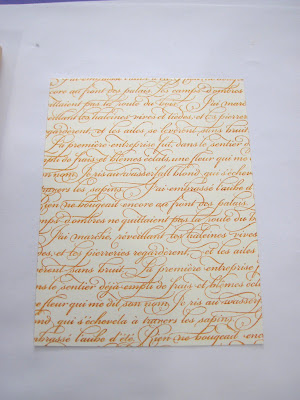 ncore au front des palais. les camps d'ombres
uittaient pas la route du bois. J'ai marc
veillant les haleines vives et tièdes, et les pierrer
regardèrent, et les ailes se levèrent sans bruit.
La première entreprise fut, dans le sentier d
mpli de frais et blêmes éclats, une fleur qui me
son nom. Je ris au wasserfall blond qui s'éche
travers les sapins. J'ai embrassé l'aube d
Rien ne bougeait encore au front des palais.
camps d'ombres ne quittaient pas la route du b
J'ai marché, réveillant les haleines vives
et les pierreries regardèrent, et les ailes
evèrent sans bruit. La première entreprise
ns le sentier déjà empli de frais et blêmes écla
e fleur qui me dit son nom. Je ris au wasserf
ond qui s'échevela à travers les sapins.
mbrassé l'aube d'été. Rien ne bougeait enc